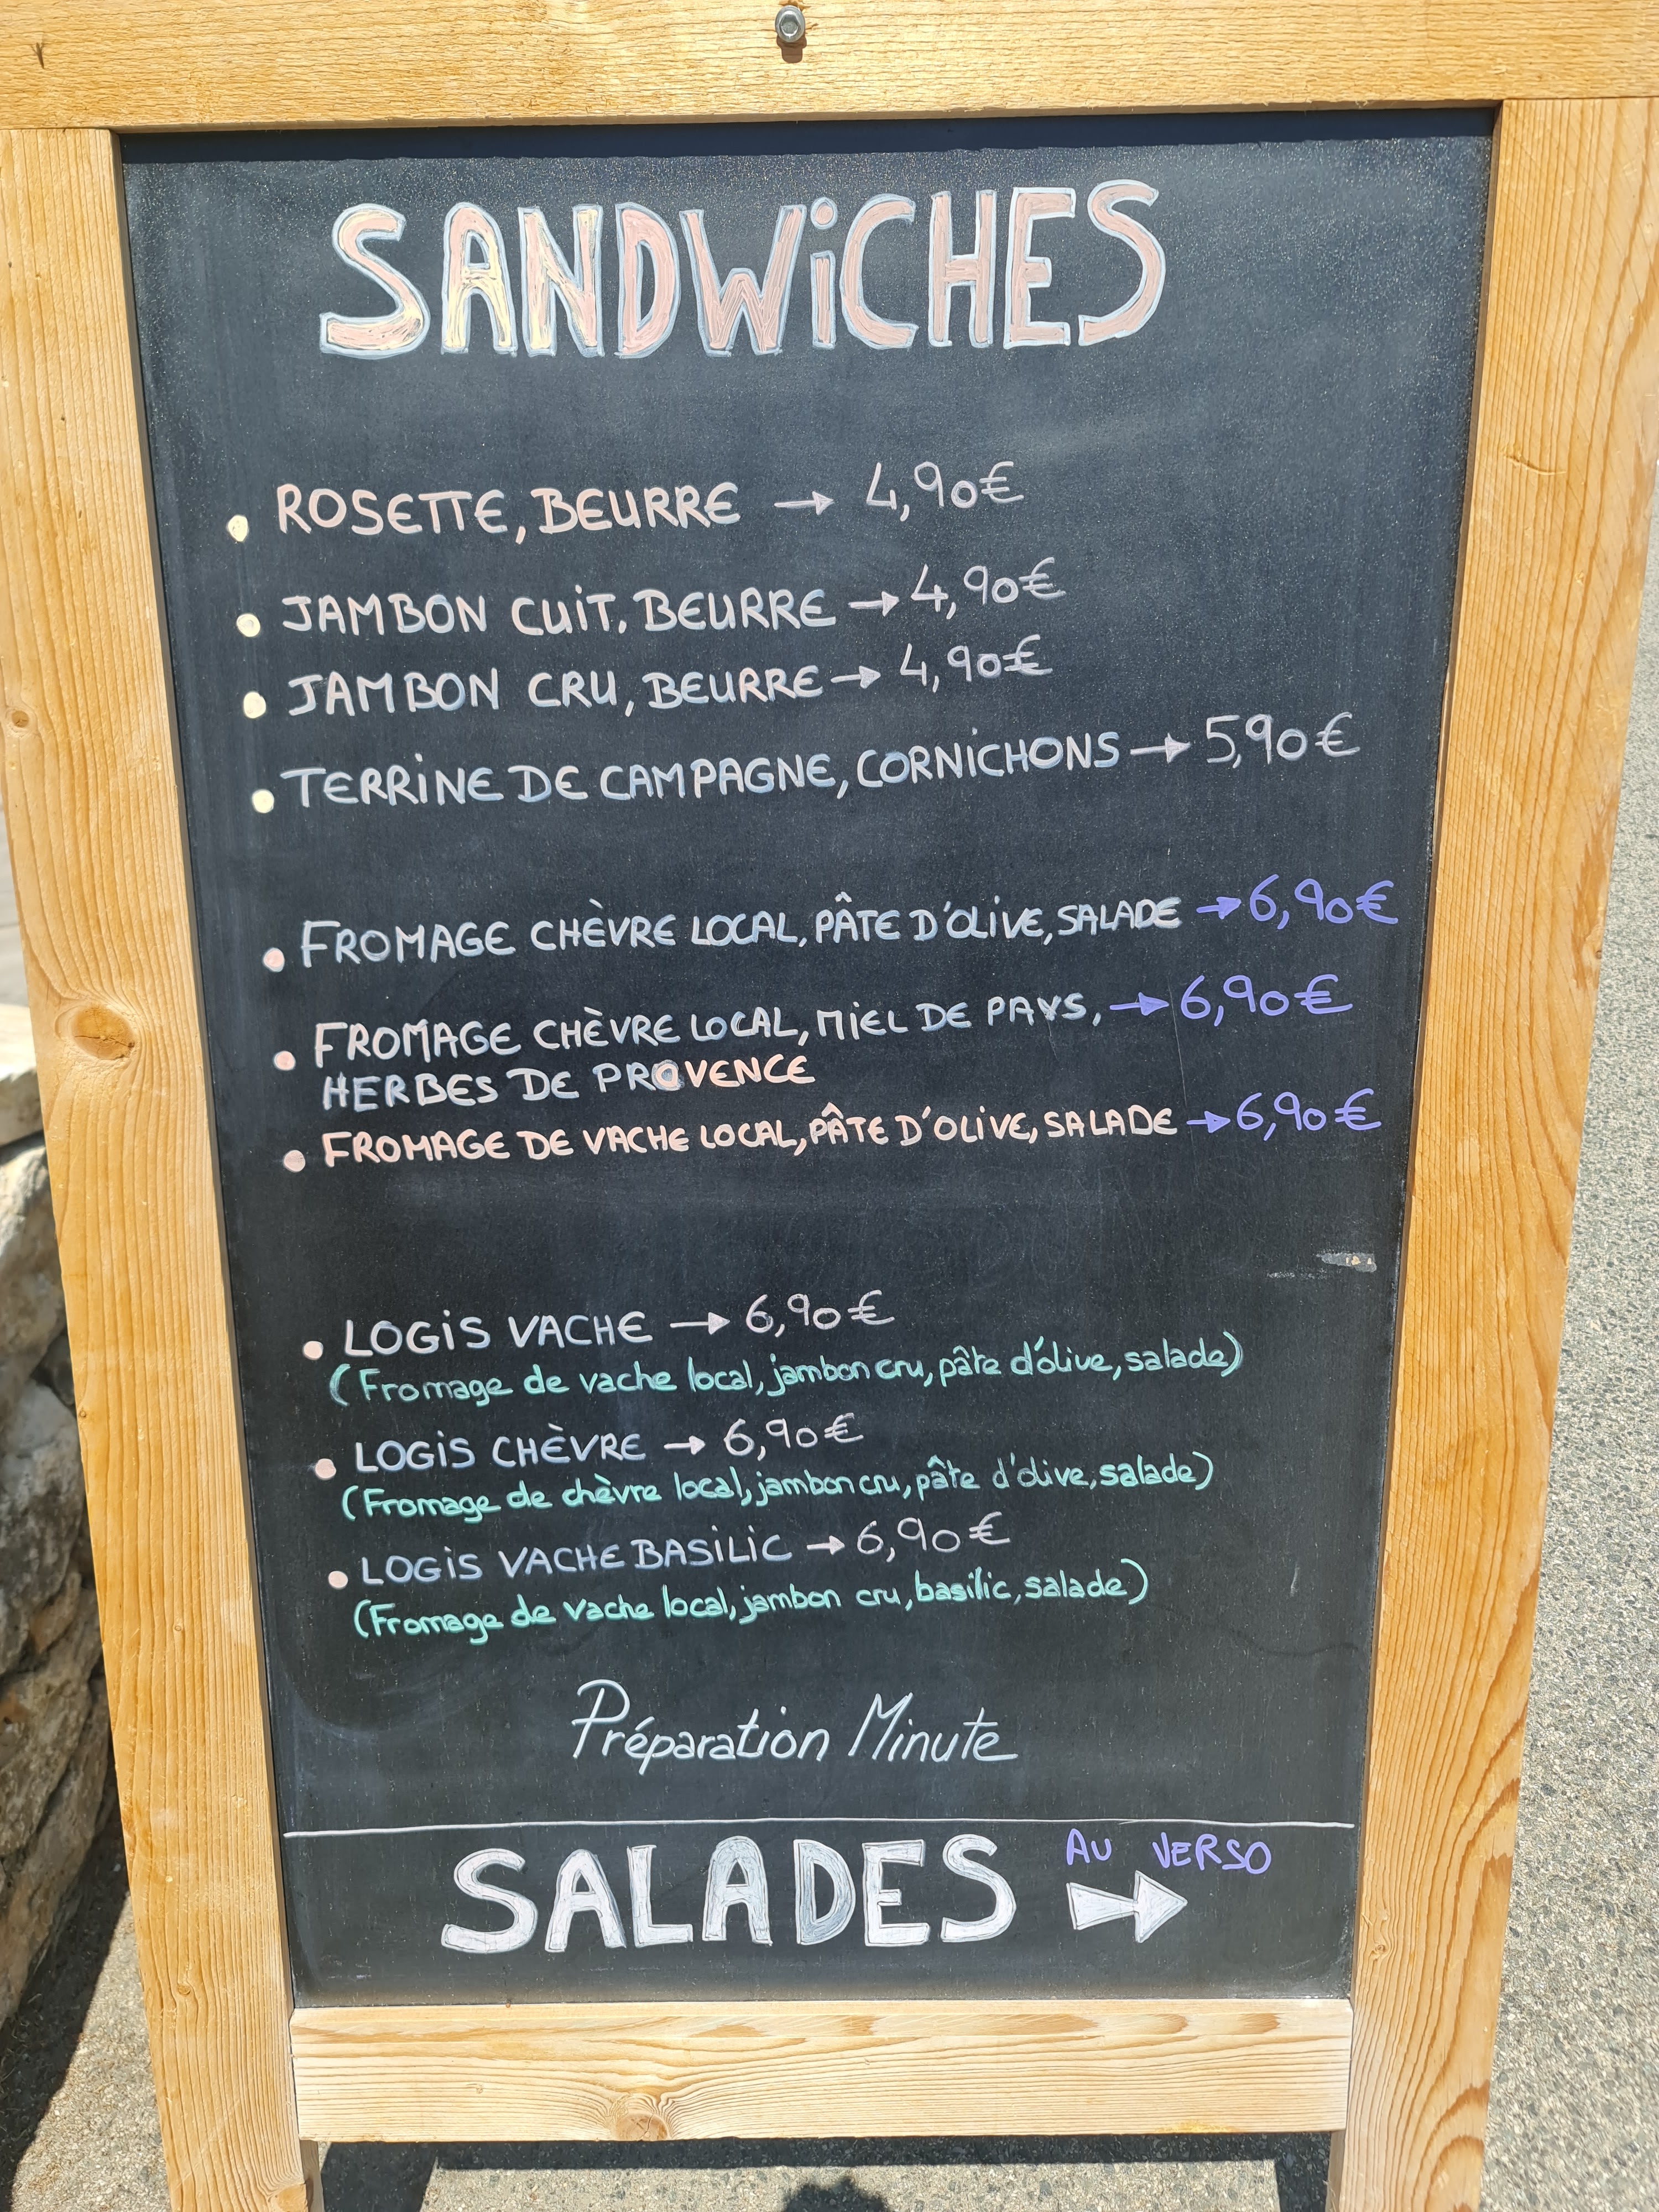 SANDWiCHES
ROSETTE, BEURRE → 4,90€
JAMBON CUiT, BEURRE → 4,90€
JAMBON CRU, BEURRE → 4,90€
TERRiNE DE CAMPAGNE, CORNiCHONS → 5,90€
FROMAGE CHÈVRE LOCAL, PÂTE D'OLiVE, SALADE → 6,90€
FROMAGE CHÈVRE LOCAL, MiEL DE PAYS, → 6,90€
HERBES DE PROVENCE
FROMAGE DE VACHE LOCAL, PÂTE D'OLiVE, SALADE → 6,90€
LOGiS VACHE → 6,90€
(Fromage de vache local, jambon cru, pâte d'olive, salade)
LOGIS CHÈVRE → 6,90€
(Fromage de chèvre local, jambon cru, pâte d'olive, salade)
LOGIS VACHE BASILIC → 6,90€
(Fromage de vache local, jambon cru, basilic, salade)
Préparation Minute
SALADES AU VERSO →